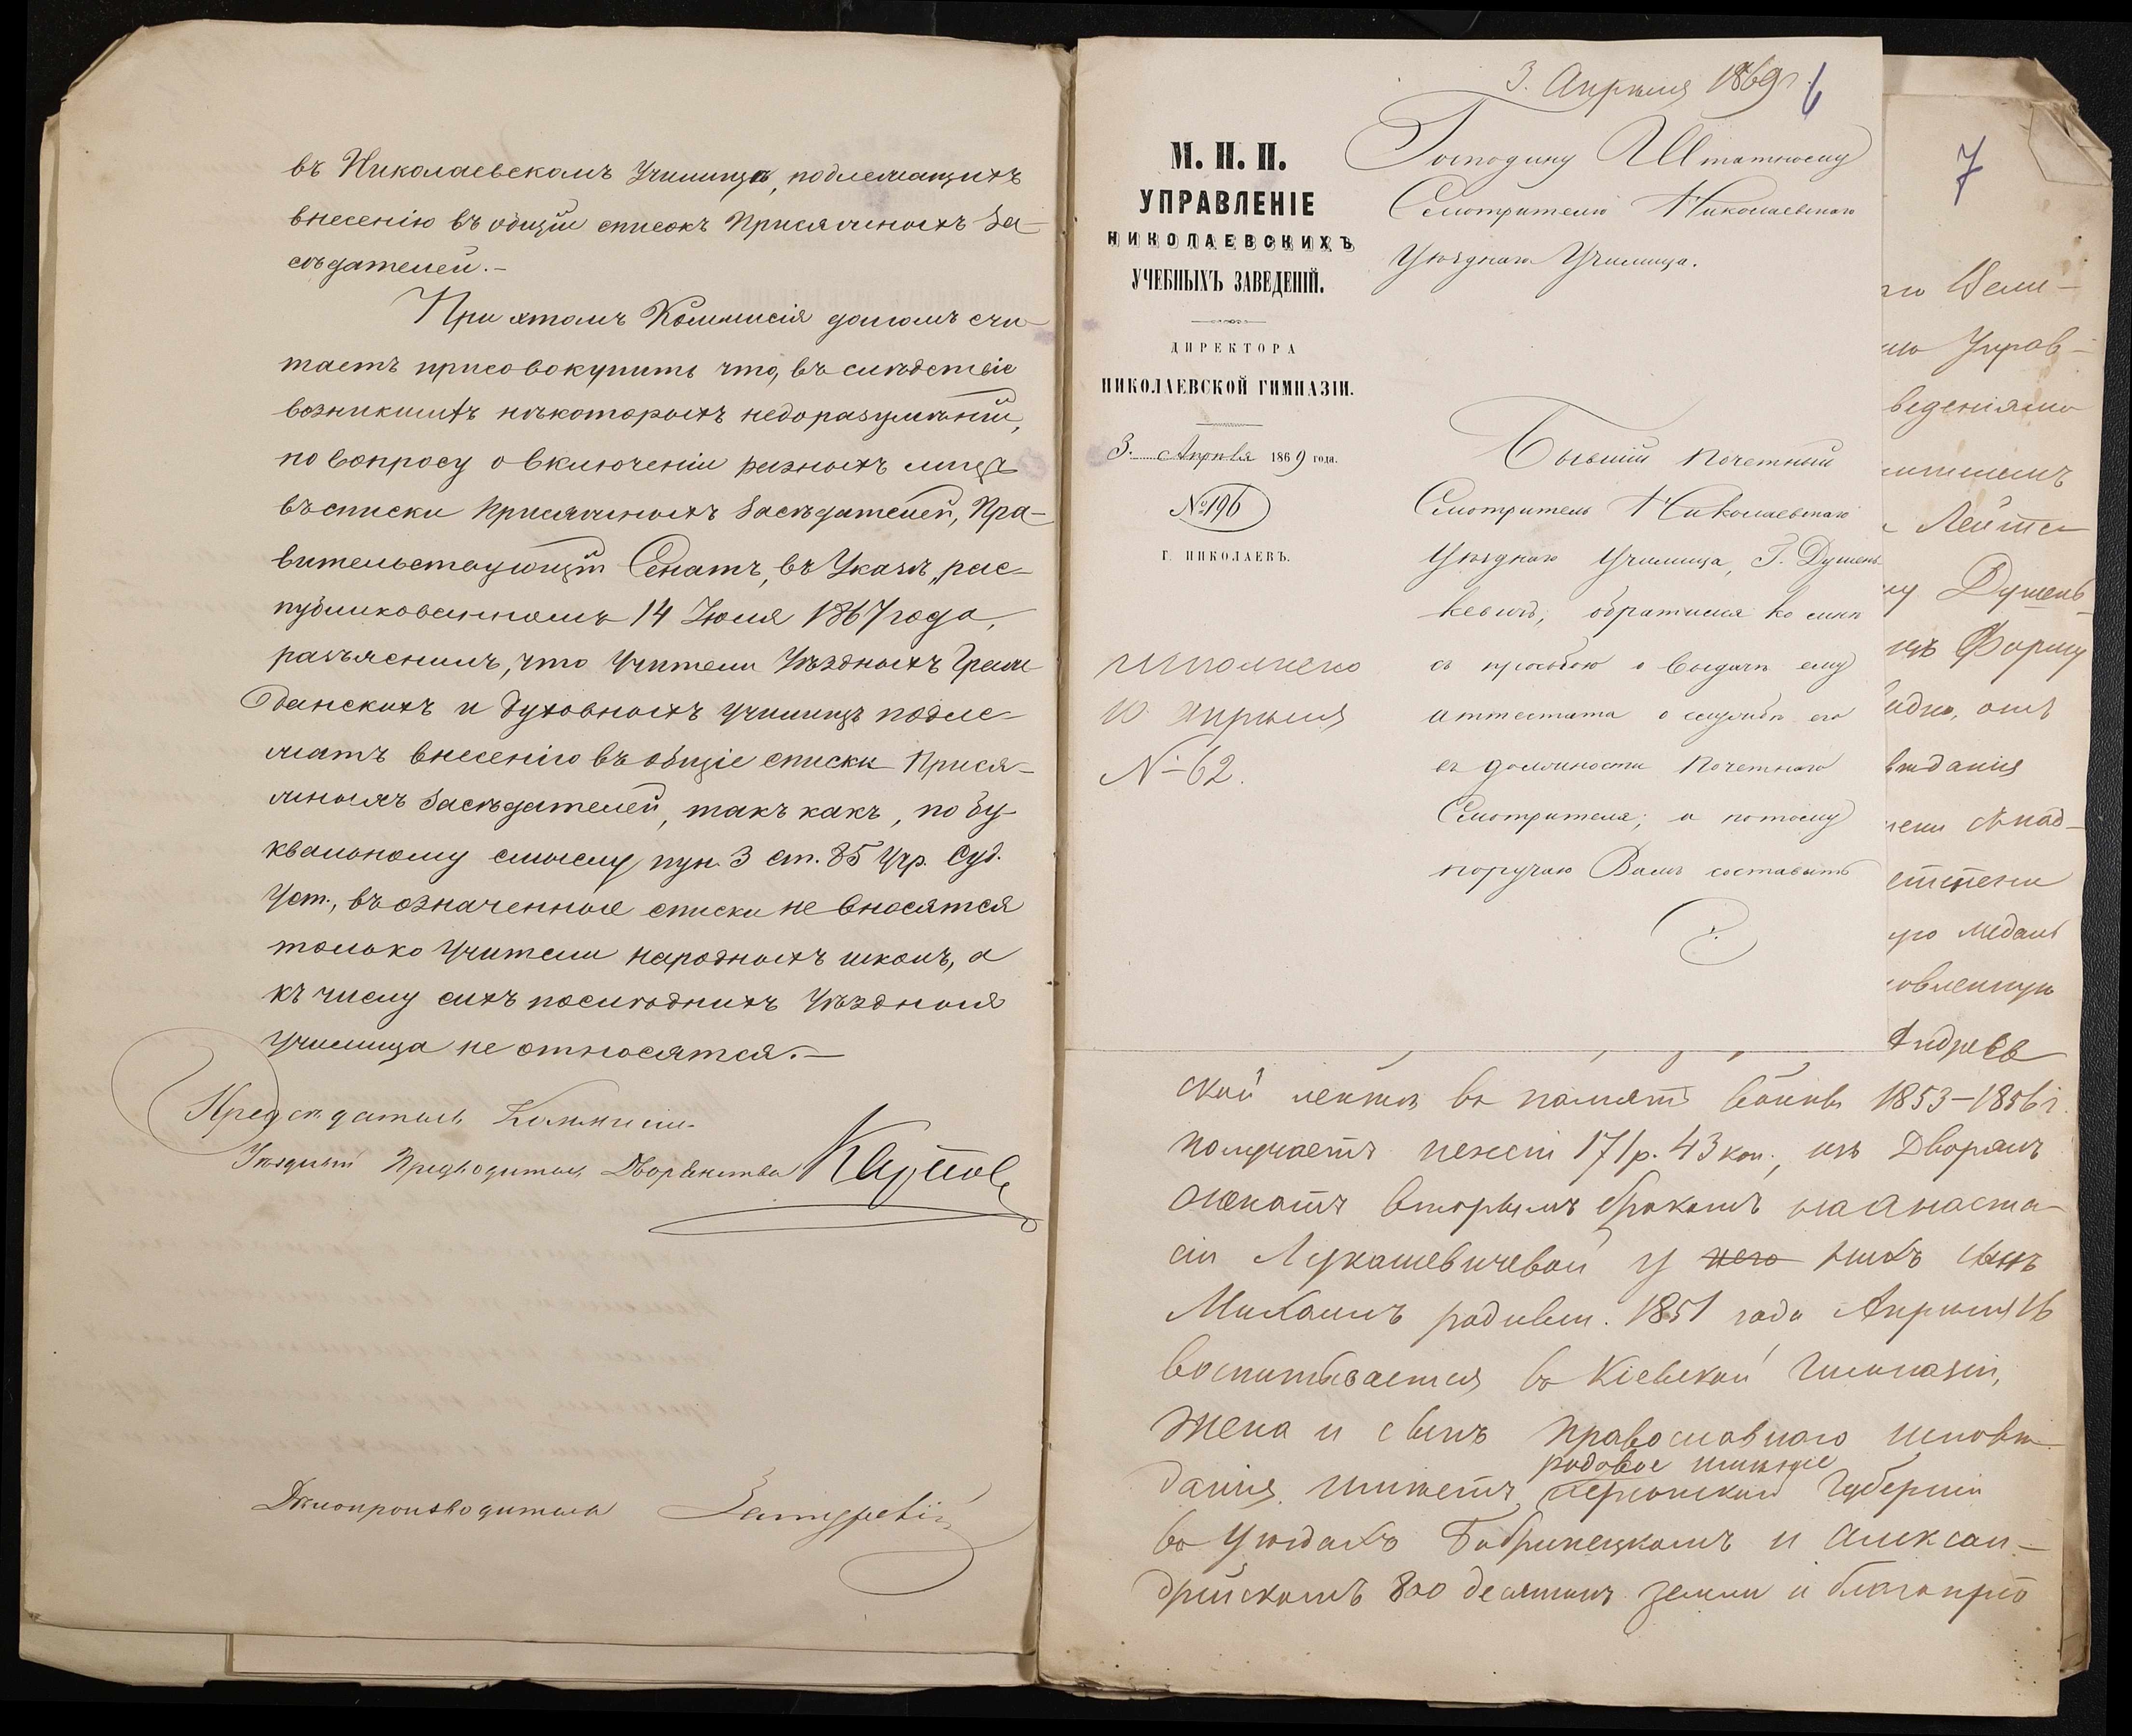 въ Николаевскомъ Училищѣ, подлежащихъ
внесенію въ общій списокъ Присяжныхъ За-
сѣдателей.-
При этомъ Коммисія долгомъ счи-
таетъ присовокупить что, въ слѣдствіе
возникшихъ нѣкоторыхъ недоразумѣній,
по вопросу о включеніи разныхъ лицъ
въ списки Присяжныхъ Засѣдателей, Пра-
вительствующій Сенатъ, въ Указѣ, рас-
публикованномъ 14 Іюля 1867 года,
разъяснилъ, что Учители Уѣздныхъ Граж-
данскихъ и Духовныхъ училищъ подле-
жатъ внесенію въ общіе списки Прися-
жныхъ Засѣдателей, такъ какъ, по бу-
квальному смыслу пун. 3 ст. 85 Учр. Суд.
Уст., въ означенные списки не вносятся
только Учители народныхъ школъ, а
къ числу сихъ послѣднихъ Уѣздныя
Училища не относятся.-
Предсѣдатель Коммисіи
Уѣздный Предводитель Дворянства
Дѣлопроизводитель
3. Апрѣля 1869 г. 6
М. Н. П.
УПРАВЛЕНІЕ
НИКОЛАЕВСКИХЪ
УЧЕБНЫХЪ ЗАВЕДЕНІЙ.
ДИРЕКТОРА
НИКОЛАЕВСКОЙ ГИМНАЗІИ.
3. Апрѣля 1869 года.
№ 196
Г. НИКОЛАЕВЪ.
исполнено
10 апрѣля
№ 62.
Господину Штатному
Смотрителю Николаевскаго
Уѣзднаго Училища.
Бывшій Почетный
Смотритель Николаевскаго
Уѣзднаго Училища, Г. Душень
кевичъ, обратился ко мнѣ
съ просьбою о выдачѣ ему
аттестата о службѣ его
въ должности Почетнаго
Смотрителя; а потому
поручаю Вамъ составить
7
Управ-
веденіями
Лейте
Душень
Форму
видно, онъ
вѣданія
степени
медаль
овленную
Андреев
ской лентѣ въ память войны 1853-1856 г.
получаетъ пенсіи 171 р. 43 коп., изъ Дворянъ
женатъ вторымъ бракомъ на Анаста-
сіи Лукашевичевой у него нихъ сынъ
Михаилъ родивш. 1851 года Апрѣля 16
воспитывается въ Кіевской Гимназіи,
Жена и сынъ православнаго исповѣ-
родовое имѣніе
данія. имѣетъ Херсонской Губерніи
въ Уѣздахъ Бобринецкомъ и Алексан-
дрійскомъ 800 десятинъ земли и благопріо